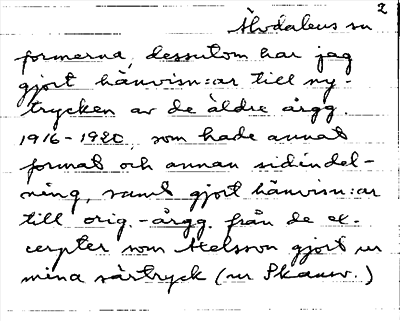 2
Älvdalens sn
formerna, dessutom har jag
gjort hänvisn:ar till ny-
trycken av de äldre årgg.
1916-1920, som hade annat
format och annan sidindel-
ning, samt gjort hänvisn:ar
till orig.-årgg. från de ex-
cerpter som Axelsson gjort ur
mina särtryck (ur Skansv.)